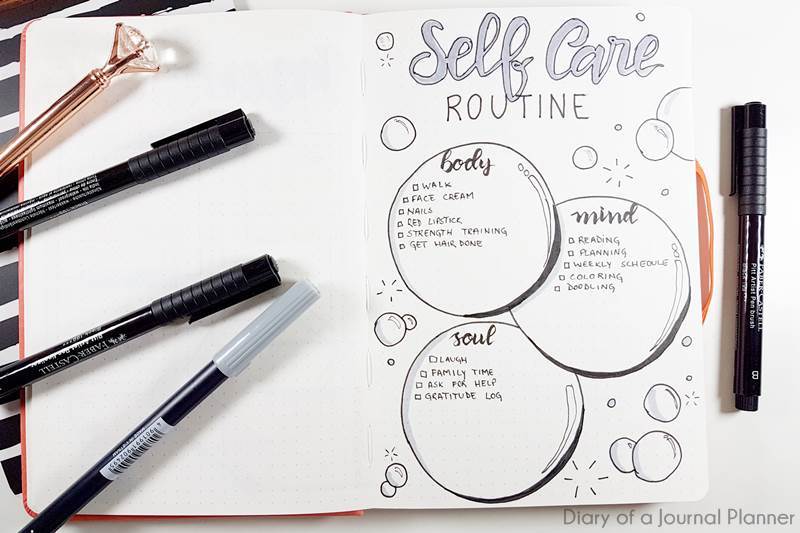 Self Care
ROUTINE
body
WALK
FACE CREAM
NAILS
RED LIPSTICK
STRENGTH TRAINING
GET HAIR DONE
mind
READING
PLANNING
WEEKLY SCHEDULE
COLORING
DOODLING
soul
LAUGH
FAMILY TIME
ASK FOR HELP
GRATITUDE LOG
FABER-CASTELL
Pitt Artist Pen brush
B
FABER-CASTELL
Diary of a Journal Planner